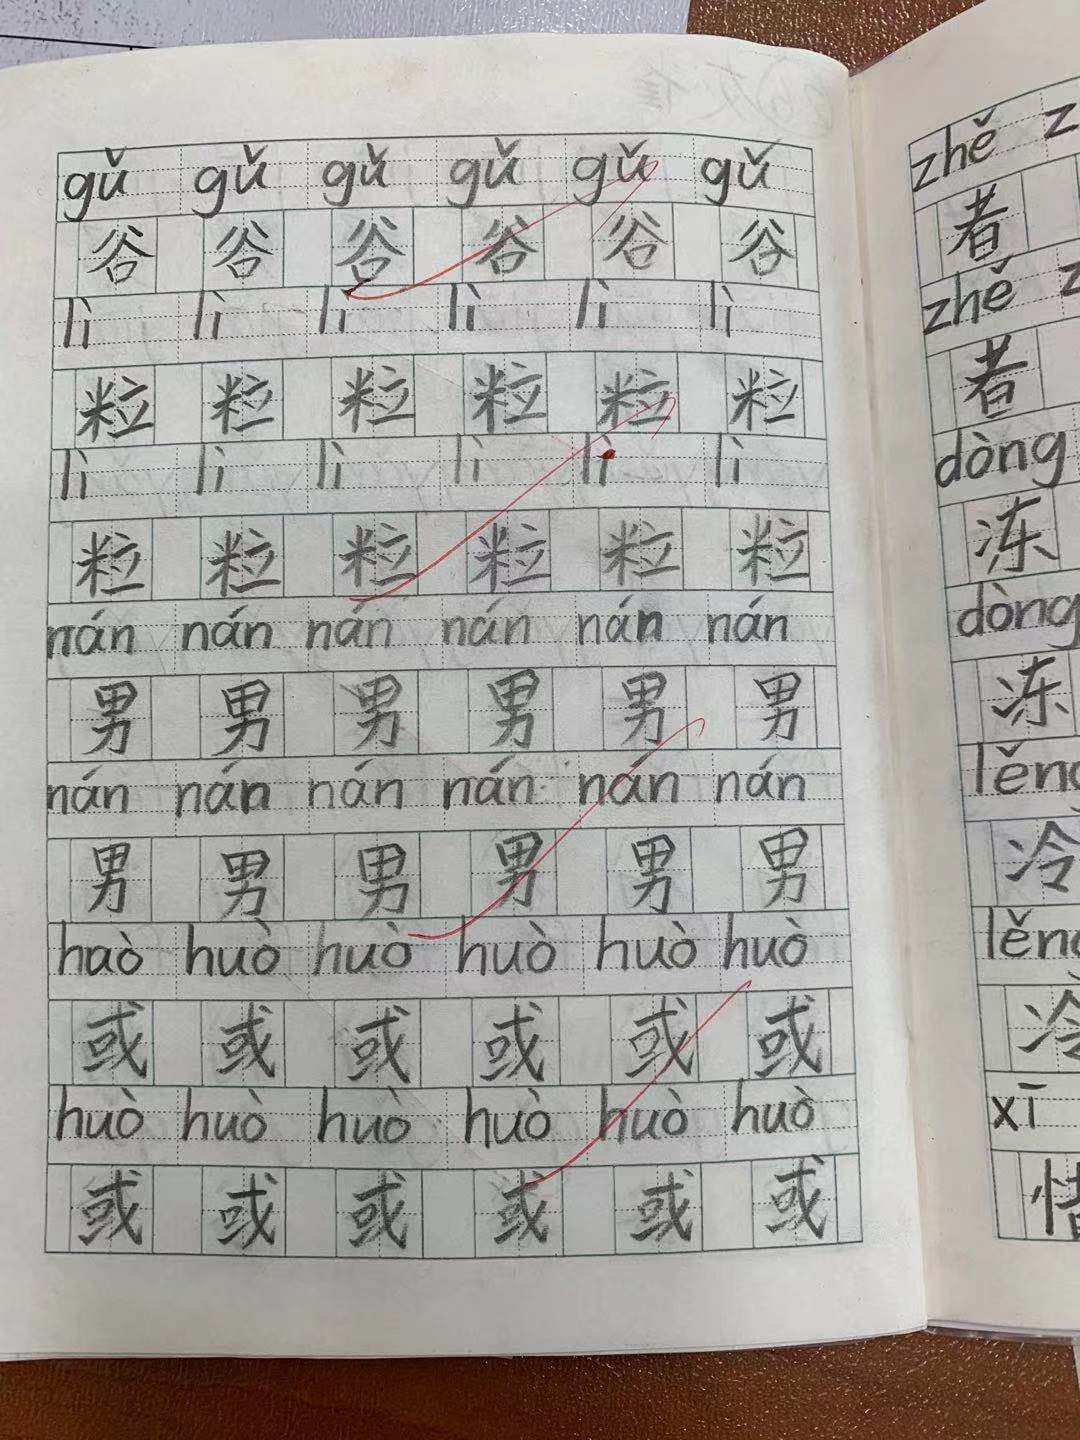 gǔ gǔ gǔ gǔ gǔ gǔ
谷 谷 谷 谷 谷 谷
lì lì lì lì lì lì
粒 粒 粒 粒 粒 粒
lì lì lì lì lì lì
粒 粒 粒 粒 粒 粒
nán nán nán nán nán nán
男 男 男 男 男 男
nán nán nán nán nán nán
男 男 男 男 男 男
haò huò huò huò huò huò
或 或 或 或 或 或
huò huò huò huò huò huò
或 或 或 或 或 或
zhě
者
zhě
者
dòng
冻
dòng
冻
lěng
冷
lěng
冷
xī
惜